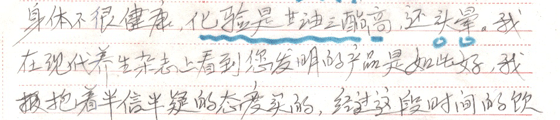 身体不很健康，化验是甘油三酯高，还头晕。我
在现代养生杂志上看到您发明的产品是如此好，我
抱着半信半疑的态度买的，经过这段时间的饮